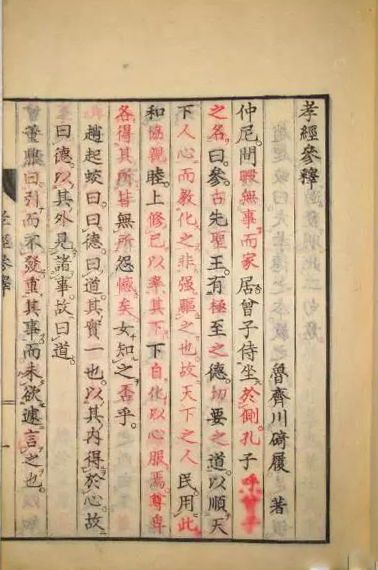 孝經參釋
魯齊川碕履 著
仲尼間暇無事而家居曾子侍坐於側孔子呼曾子
之名曰參古先聖王有極至之德切要之道以順天
下人心而教化之非强驅之也故天下之人民用此
和協親睦上修己以率其下下自化以心服焉尊卑
各得其所甚無所怨憾矣女知之否乎
趙起蛟曰曰德曰道其實一也以其內得於心故
曰德以其外見諸事故曰道
董鼎曰引而不發重其事而未欲遽言之也